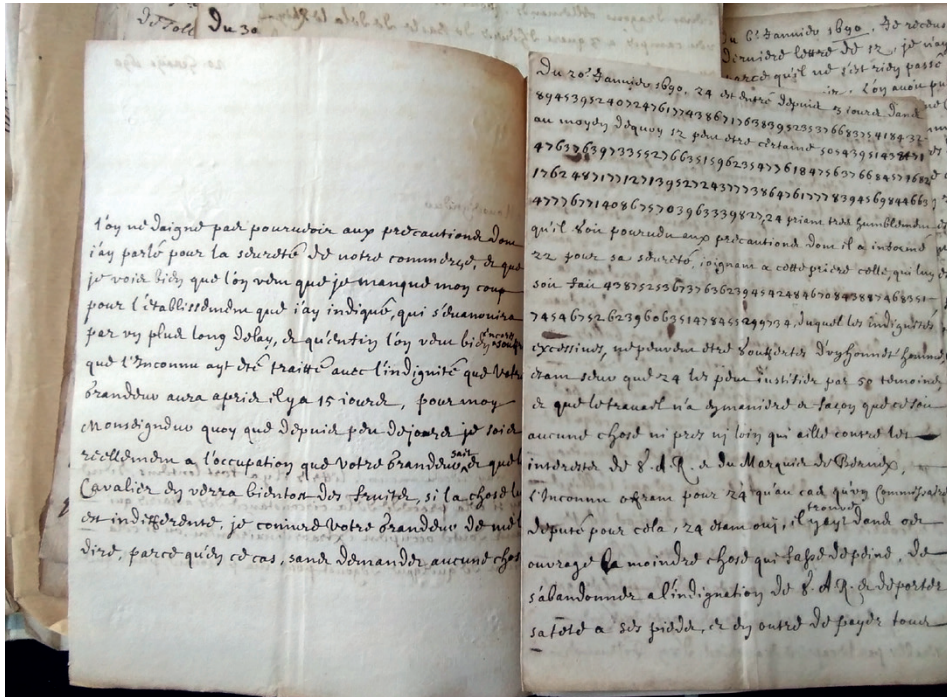 Du 30
l'on ne daigne pas pourvoir aux precautions dont
j'ay parlé pour la seureté de notre commerce, et que
je vois bien que l'on veut que je manque mon coup
pour l'établissement que j'ay indiqué, qui s'évanouira
par un plus long delay, et qu'enfin l'on veut bien encore
que l'Inconnu ayt été traitté avec l'indignité que Votre
Grandeur aura apris il y a 15 jours, pour moy
Monseigneur quoy que depuis peu de jours je sois
reellement a l'occupation que Votre Grandeur sait, et que le
Cavalier en verra bientost des fruits, si la chose luy
est indifferente, je conjure Votre Grandeur de me le
dire, parce qu'en ce cas, sans demander aucune chose
Du 6e Janvier 1690. Je receus
derniere lettre de 12, je n'ay
parce qu'il ne s'est rien passé
l'on avoit pu
Du 20e Janvier 1690. 24 est entré depuis 3 jours dans
8945395240724761774386717638395235376683754184 32
au moyen dequoy 12 peut etre certaine 5054395143
476376397335527663515962354776184756376684577682
1762487177127139527243777386476177783945698446 63
4777677140867570396333982 7, 24 priant tres humblement
qu'il soit pourveu aux precautions dont il a informé
22 pour sa seureté, joignant a cette priere celle, qui luy en
soit fait 438752536737636239454284846708438874683 51
7454675262396063514784552 49734, duquel les indignités
excessives, ne peuvent etre souffertes d'un honneste homme
etant seur que 24 les peut justifier par 50 temoins
et que le travail n'a en maniere et façon que ce soit
aucune chose ni prez ny loin qui aille contre les
interests de S. A. R. et du Marquis de Bernex,
l'Inconnu offrant pour 24 qu'au cas qu'un Commissaire
deputé pour cela, 24 etant ouï, il trouve y ayt dans cet
ouvrage la moindre chose qui fasse de peine, de
s'abandonner a l'indignation de S. A. R. et de porter
sa tete a ses pieds, et en outre de payer tous